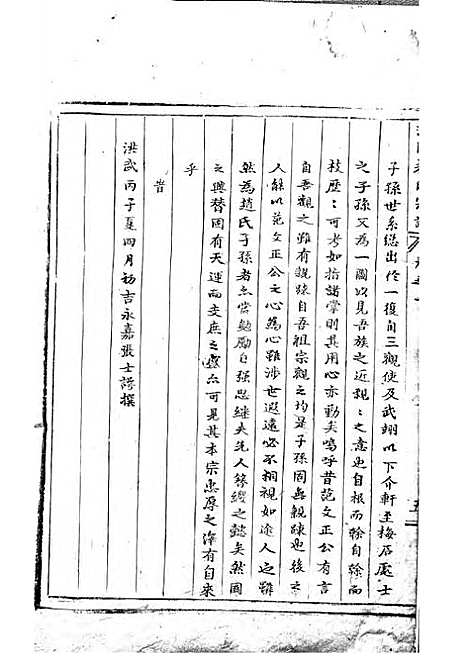 子孫世系總出於一復自三觀使及武翊以下介軒至梅居處士
之子孫又為一圖以見吾族之近親:之意思自根而榦自榦而
枝歷:可考如指諸掌則其用心亦勤矣嗚呼昔范文正公有言
自吾觀之雖有親踈自吾祖宗觀之均是子孫固無親踈也後之
人能以范文正公之心為心雖涉世遐遠必不相視如途人之雖
然為趙氏子孫者亦當勉勵自強思繼夫先人簪纓之懿矣然國
之興替固有天運而支庶之盛亦可見其本宗忠厚之澤有自來
乎
昔
洪武丙子夏四月初吉永嘉張士諤撰